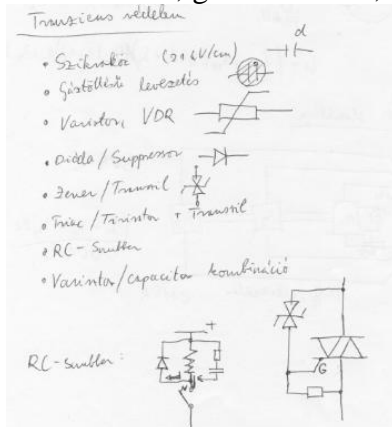 Tranziens védelem
• Szikraköz (21kV/cm) d
• Gáztöltésű levezetés
• Varistor, VDR
• Dióda/Suppressor
• Zener/Transil
• Triac/Tirisztor + Transil
• RC-Snubber
• Varistor/capacitor kombináció
RC-snubber:
+
G